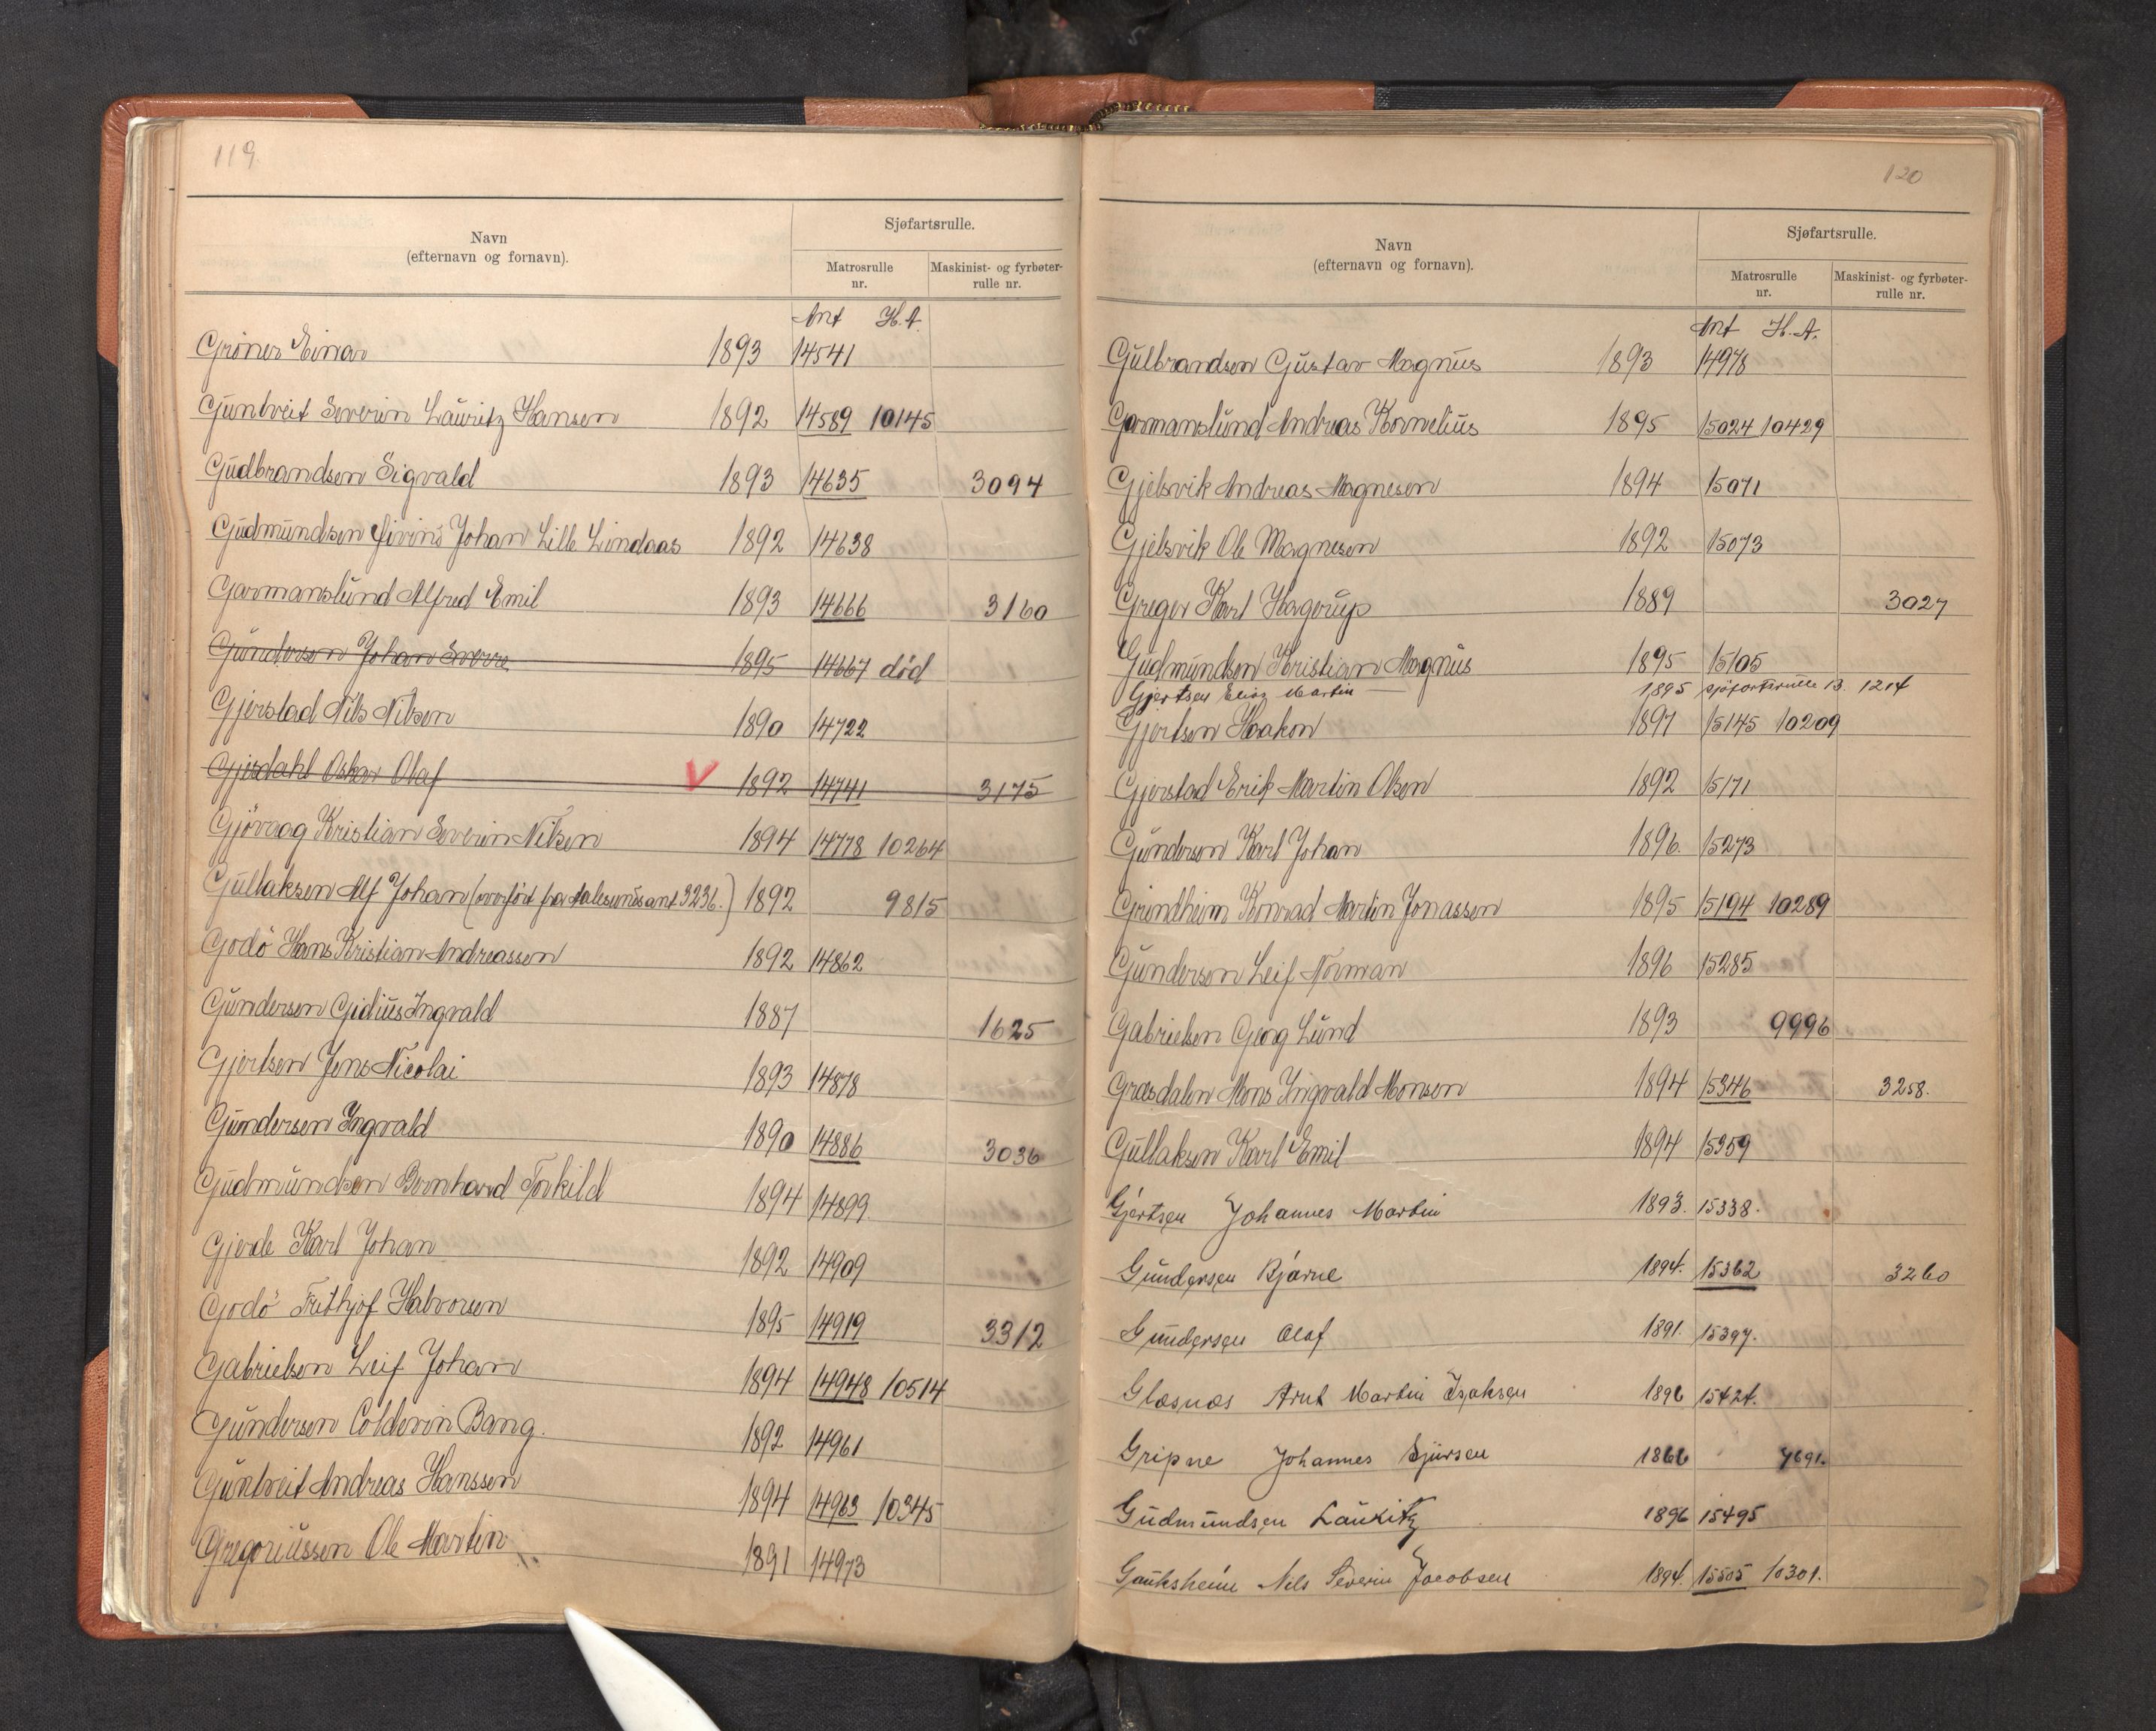 119.
Navn
(efternavn og fornavn).
Sjøfartsrulle.
Matrosrulle
nr.
Maskinist- og fyrbøter-
rulle nr.
Ant H.A.
Gröner Einar 1893 14541
Guntveit Severin Lauritz Hansen 1892 14589 10145
Gudbrandsen Sigvald 1893 14635 3094
Gudmundsen Johan Lille Lindaas 1892 14638
Garmanslund Alfred Emil 1893 14666 3160
Gundersen Johan Sverre 1895 14667 død
Gjerstad Nils Nilsen 1890 14722
Gjesdahl Oskar Olaf V 1892 14741 3175
Gjövaag Kristian Severin Nilsen 1894 14778 10264
Gullaksen Alf Johan (overført fra Aalesunds ant 3236.) 1892 9815
Godö Hans Kristian Andreassen 1892 14862
Gundersen Gidius Ingvald 1887 1625
Gjertsen Jens Nicolai 1893 14878
Gundersen Ingvald 1890 14886 3036
Gudmundsen Bernhard Torkild 1894 14899
Gjerde Karl Johan 1892 14909
Godö Frithjof Halvorsen 1895 14919 3312
Gabrielsen Leif Johan 1894 14948 10514
Gundersen Coldevin Bang. 1892 14961
Guntveit Andreas Hanssen 1894 14963 10345
Gregoriussen Ole Martin 1891 14973
120
Navn
(efternavn og fornavn).
Sjøfartsrulle.
Matrosrulle
nr.
Maskinist- og fyrbøter-
rulle nr.
Ant H.A.
Gulbrandsen Gustav Magnus 1893 14978
Garmanslund Andreas Kornelius 1895 15024 10429
Gjelsvik Andreas Magnesen 1894 15071
Gjelsvik Ole Magnesen 1892 15073
Greger Karl Hagerup 1889 3027
Gudmundsen Kristian Magnus 1895 15105
Gjertsen Elias Martin 1895 sjöfartsrulle B. 1214
Gjertsen Haakon 1897 15145 10209
Gjerstad Erik Martin Olsen 1892 15171
Gundersen Karl Johan 1896. 15273
Grindheim Konrad Martin Jonassen 1895 15194 10289
Gundersen Leif Norman 1896 15285
Gabrielsen Georg Lund 1893 9996
Græsdalen Mons Ingvald Monsen 1894 15346 3258.
Gullaksen Karl Emil 1894 15359
Gjertsen Johannes Martin 1893. 15338.
Gundersen Bjarne 1894. 15362 3260
Gundersen Olaf 1891. 15397.
Glæsnæs Arnt Martin Isaksen 1896 15424.
Gripne Johannes Sjursen 1866 7691.
Gudmundsen Lauritz 1896 15495
Gauksheim Nils Severin Jacobsen 1894. 15505 10301.